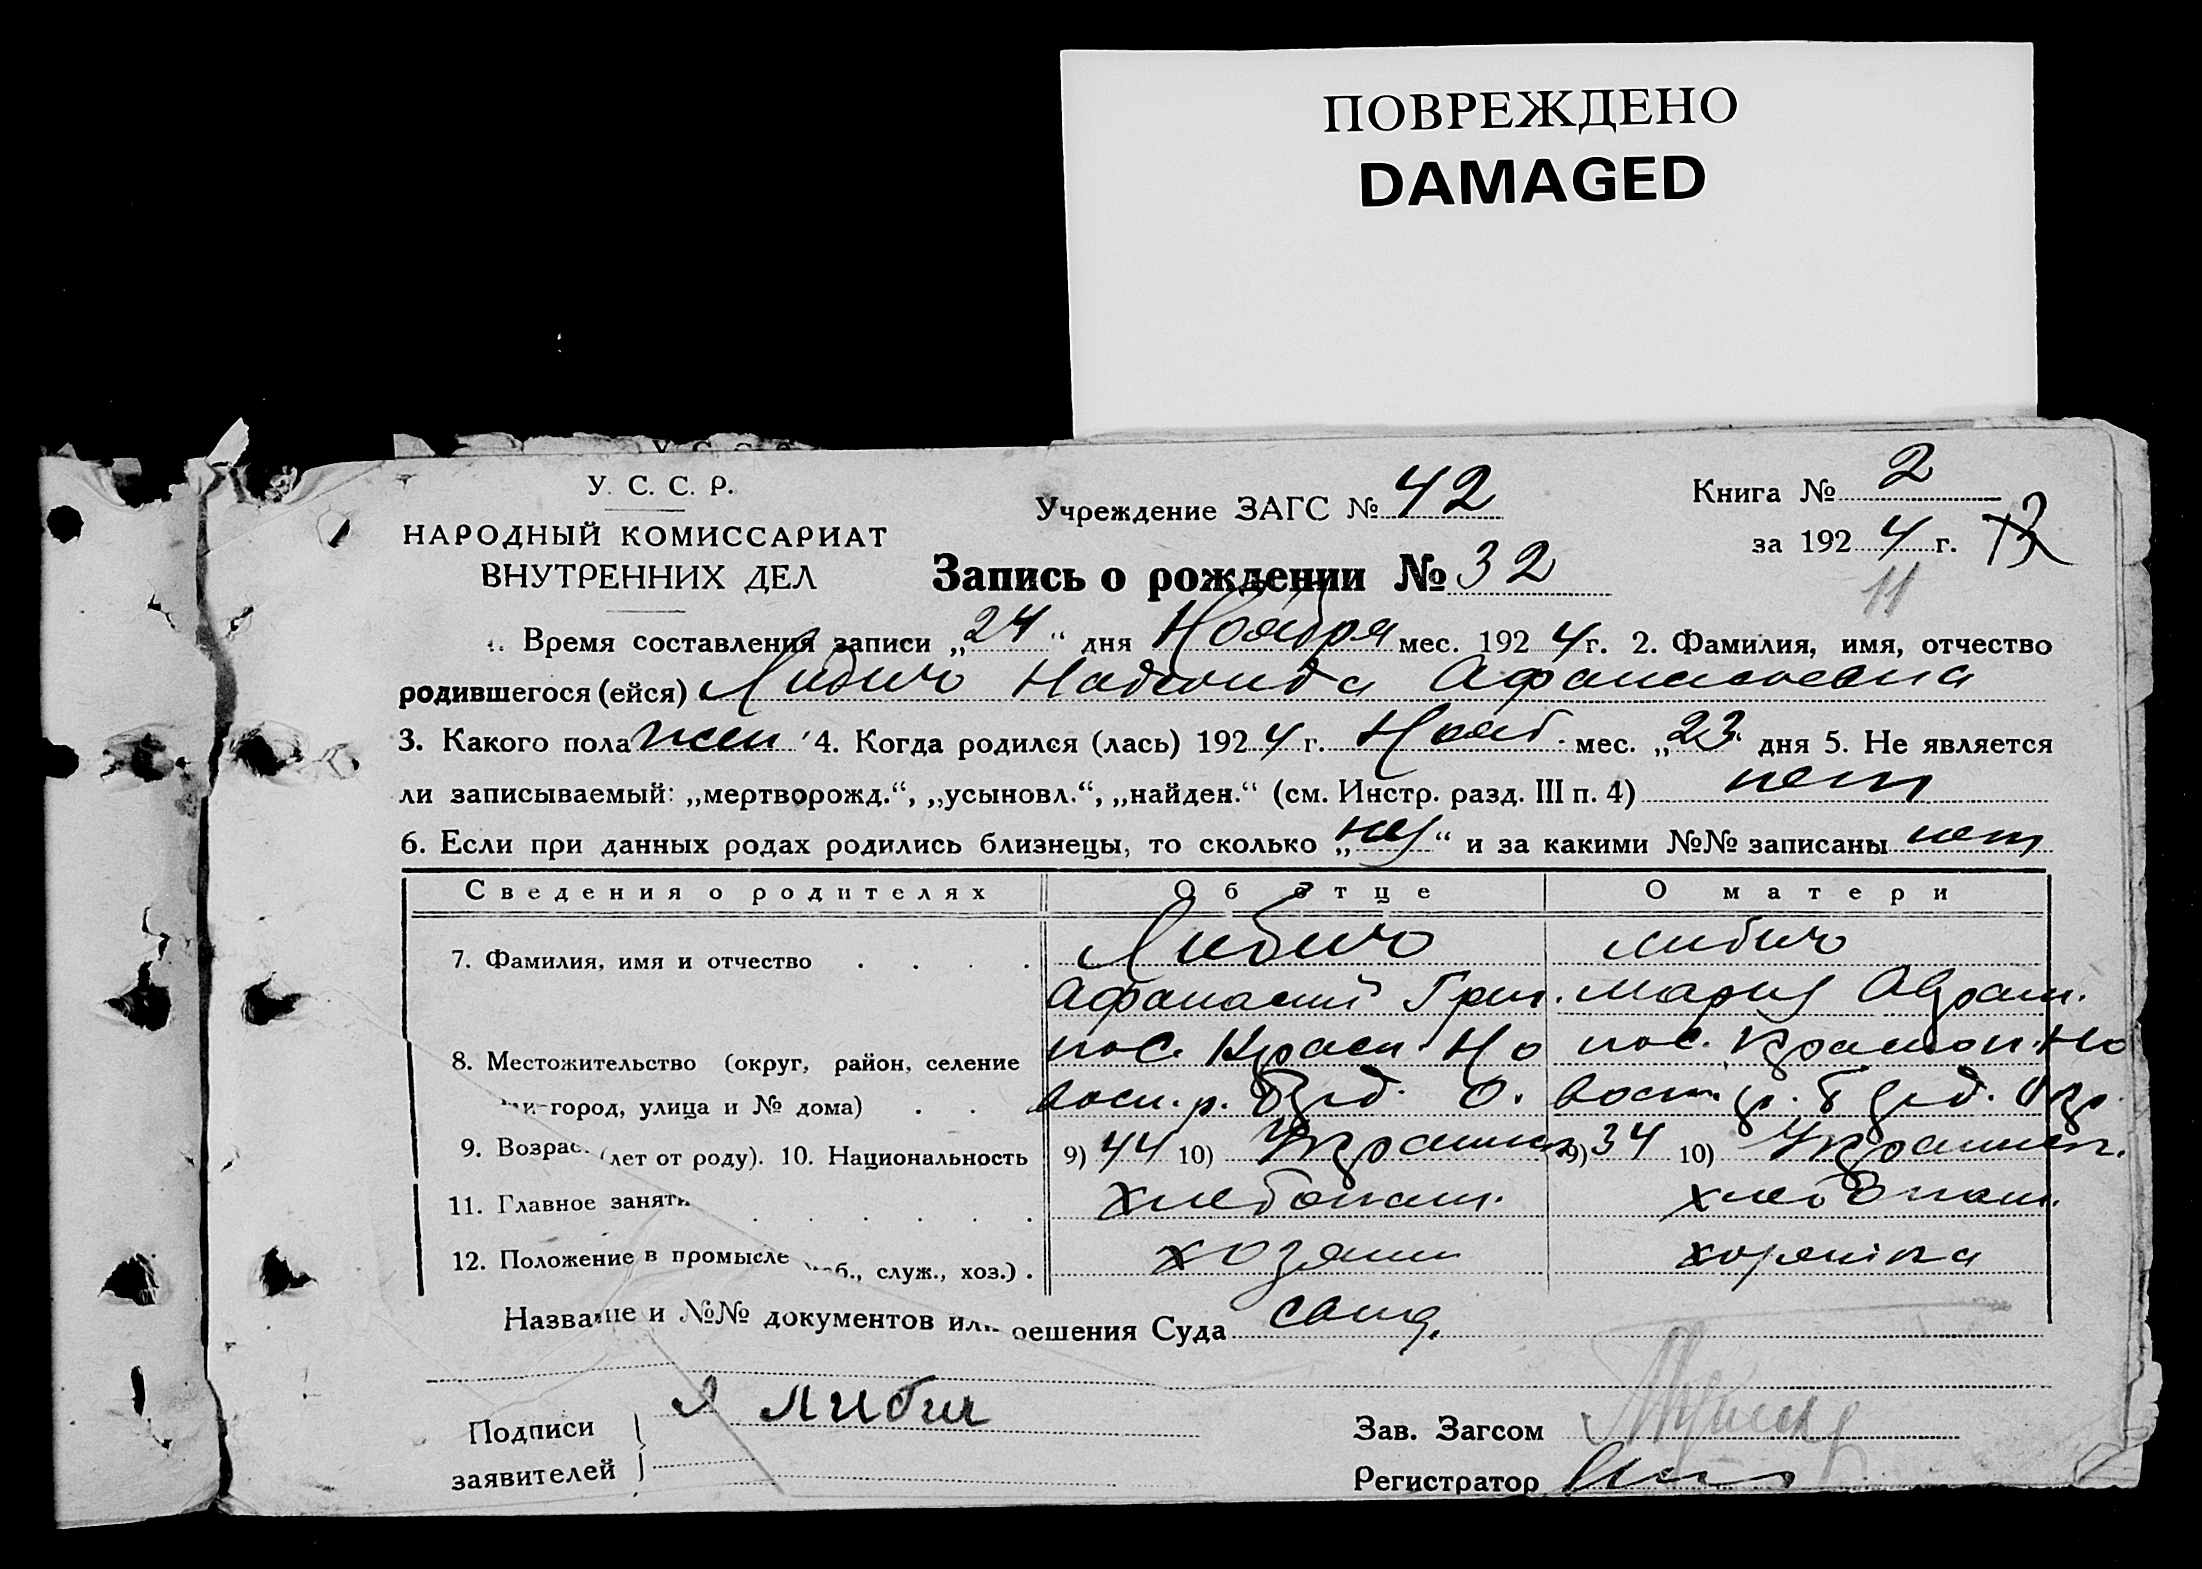 ПОВРЕЖДЕНО
DAMAGED
У. С. С. Р.
НАРОДНЫЙ КОМИССАРИАТ
ВНУТРЕННИХ ДЕЛ
Учреждение ЗАГС № 42
Книга № 2
за 1924 г. 13
11
Запись о рождении № 32
Время составления записи „24“ дня Ноября мес. 1924 г. 2. Фамилия, имя, отчество
родившегося (ейся) Либич Надежда Афанасьевна
3. Какого пола жен 4. Когда родился (лась) 1924 г. Нояб. мес. „23. дня 5. Не является
ли записываемый: „мертворожд.“, „усыновл.“, „найден.“ (см. Инстр. разд. III п. 4) нет
6. Если при данных родах родились близнецы, то сколько „ “ и за какими №№ записаны нет
Сведения о родителях Об отце О матери
7. Фамилия, имя и отчество . . . . Либич Либич
Афанасий Григ. Мария Аврам.
8. Местожительство (округ, район, селение пос. Красн. Но пос. Красноп. Но
город, улица и № дома) . . . р. О.
9. Возрас (лет от роду). 10. Национальность 9) 44 10) Украин 9) 34 10) Украин.
11. Главное занят . . . . . . хлебопаш. хлебопаш.
12. Положение в промысле об., служ., хоз.) . хозяин хозяйка
Название и №№ документов или решения Суда
Подписи
заявителей } Я Либич
Зав. Загсом
Регистратор